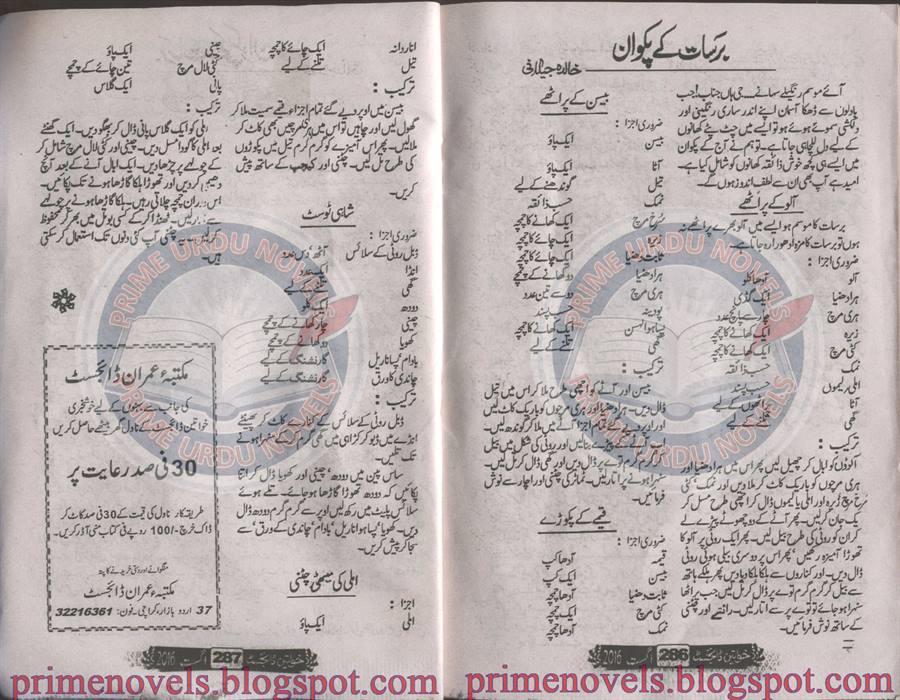 برسات کے پکوان
خالدہ جیلانی
آئے موسم رنگیلے سہانے۔ جی ہاں جناب! جب
بادلوں سے ڈھکا آسمان اپنے اندر ساری رنگینی اور
دلکشی سموئے ہوئے ہو تو ایسے میں چٹ پٹے کھانوں
کے لیے دل للچا ہی جاتا ہے۔ تو ہم نے آج کے پکوان
میں ایسے ہی کچھ خوش ذائقہ کھانوں کو شامل کیا ہے۔
امید ہے آپ بھی ان سے لطف اندوز ہوں گے۔
آلو کے پراٹھے
برسات کا موسم ہو ایسے میں آلو بھرے پراٹھے نہ
ہوں تو برسات کا مزا ادھورا رہ جاتا ہے۔
ضروری اجزا :
آلو آدھا کلو
ہرا دھنیا ایک گڈی
ہری مرچ چار سے پانچ عدد
زیرہ ایک کھانے کا چمچہ
کٹی مرچ ایک کھانے کا چمچہ
نمک حسب ذائقہ
املی، لیموں حسب پسند
آٹا پراٹھوں کے لیے
گھی تلنے کے لیے
ترکیب :
آلوؤں کو ابال کر چھیل لیں، پھر اس میں ہرا دھنیا اور
ہری مرچوں کو باریک کاٹ کر ملا دیں اور نمک، کٹی
سرخ مرچ، زیرہ اور املی یا لیموں ڈال کر اچھی طرح مسل کر
یک جان کر لیں۔ پھر آٹے کے دو چھوٹے پیڑے لے
کر ان کو روٹی کی طرح بیل لیں۔ پھر ایک روٹی پر آلو کا
تھوڑا آمیزہ رکھیں، پھر اس پر دوسری بیلی ہوئی روٹی
ڈال دیں۔ اور کناروں سے ہلکا ہلکا دبا دیں پھر ہلکے ہاتھ
سے بیل کر گرم گرم توے پر ڈال کر تل لیں جب پراٹھا
سنہرا ہو جائے تو توے پر سے اتار لیں۔ رائتے اور چٹنی
کے ساتھ نوش فرمائیں۔
بیسن کے پراٹھے
ضروری اجزا :
بیسن ایک پاؤ
آٹا ایک پاؤ
تیل گوندھنے کے لیے
نمک حسب ذائقہ
سرخ مرچ ایک کھانے کا چمچہ
زیرہ ایک چائے کا چمچہ
ثابت دھنیا ایک چائے کا چمچہ
ہرا دھنیا دو کھانے کے چمچے
ہری مرچ دو سے تین عدد
پودینہ حسب پسند
پسا ہوا لہسن ایک کھانے کا چمچہ
گھی تلنے کے لیے
بیسن اور آٹے کو اچھی طرح ملا کر اس میں تیل
ڈال دیں۔ ہرا دھنیا اور ہری مرچوں کو باریک کاٹ لیں
اور اس کے بعد تمام اجزا آٹے میں ملا کر گوندھ لیں۔
اب آٹے کے پیڑے بنائیں اور روٹی کی شکل میں بیل
کر گرم گرم توے پر ڈال دیں اور گھی ڈال کر تل لیں۔
سنہرے ہونے پر اتار لیں۔ ٹماٹر کی چٹنی اور اچار سے نوش
فرمائیں۔
قیمے کے پکوڑے
ضروری اجزا :
قیمہ آدھا کپ
بیسن ایک کپ
ثابت دھنیا آدھا چمچہ
کٹی مرچ ایک چمچہ
نمک آدھا چمچہ
خواتین ڈائجسٹ 286 اگست 2016
انار دانہ ایک چائے کا چمچہ
تیل تلنے کے لیے
ترکیب :
بیسن میں اوپر دیے گئے تمام اجزاء قیمے سمیت ملا کر
گھول لیں اور چاہیں تو اس میں ہرا نکر پیس بھی کاٹ کر
ملا لیں۔ پھر اس آمیزے کو گرم گرم تیل میں پکوڑوں
کی طرح تل لیں۔ چٹنی اور کیچپ کے ساتھ پیش
کریں۔
شاہی ٹوسٹ
ضروری اجزا :
ڈبل روٹی کے سلائس آٹھ، دس عدد
انڈا ایک عدد
گھی تلنے کے لیے
دودھ ایک کلو
چینی چار کھانے کے چمچے
کھویا دو کھانے کے چمچے
بادام، پسا ناریل گارنشنگ کے لیے
چاندی کا ورق گارنشنگ کے لیے
ترکیب :
ڈبل روٹی کے سلائس کے کنارے کاٹ کر پھینٹے
انڈے میں ڈبو کر کڑاہی میں گھی گرم کر کے سنہرا ہونے
تک تلیں۔
ساس پین میں دودھ، چینی اور کھویا ڈال کر اتنا
پکائیں کہ دودھ تھوڑا گاڑھا ہو جائے۔ تلے ہوئے
سلائس پلیٹ میں رکھیں اوپر سے گرم گرم دودھ ڈال
دیں۔ کھویا، پسا ہوا ناریل، بادام، چاندی کے ورق سے
سجا کر پیش کریں۔
املی کی میٹھی چٹنی
اجزا :
املی ایک پاؤ
چینی ایک پاؤ
کٹی لال مرچ تین چائے کے چمچے
پانی ایک گلاس
ترکیب :
املی کو ایک گلاس پانی ڈال کر بھگو دیں۔ ایک گھنٹے
بعد املی کا گودا مسل دیں۔ چینی اور کٹی لال مرچ شامل کر
کے چولہے پر چڑھا دیں۔ ایک ابال آنے کے بعد آنچ
دھیمی کر دیں اور تھوڑا ہلکا گاڑھا ہونے تک پکائیں۔
اس دوران چمچہ چلاتی رہیں۔ ہلکا گاڑھا ہونے پر چولہے
سے اتار لیں۔ ٹھنڈا کر کے کسی بوتل میں بھر کر محفوظ
کر لیں۔ یہ چٹنی آپ کئی دنوں تک استعمال کر سکتی
ہیں۔
مکتبہء عمران ڈائجسٹ
کی جانب سے بہنوں کے لیے خوشخبری
خواتین ڈائجسٹ کے ناول گھر بیٹھے حاصل کریں
30 فی صد رعایت پر
طریقہ کار ناول کی قیمت کے 30 فی صد کاٹ کر
ڈاک خرچ -/100 روپے فی کتاب منی آرڈر کریں۔
منگوانے اور دستی خریدنے کا پتہ
مکتبہء عمران ڈائجسٹ
37 اردو بازار، کراچی۔ فون: 32216361
خواتین ڈائجسٹ 287 اگست 2016
PRIME URDU NOVELS
PRIME URDU NOVELS
PRIME URDU NOVELS
PRIME URDU NOVELS
primenovels.blogspot.com primenovels.blogspot.com